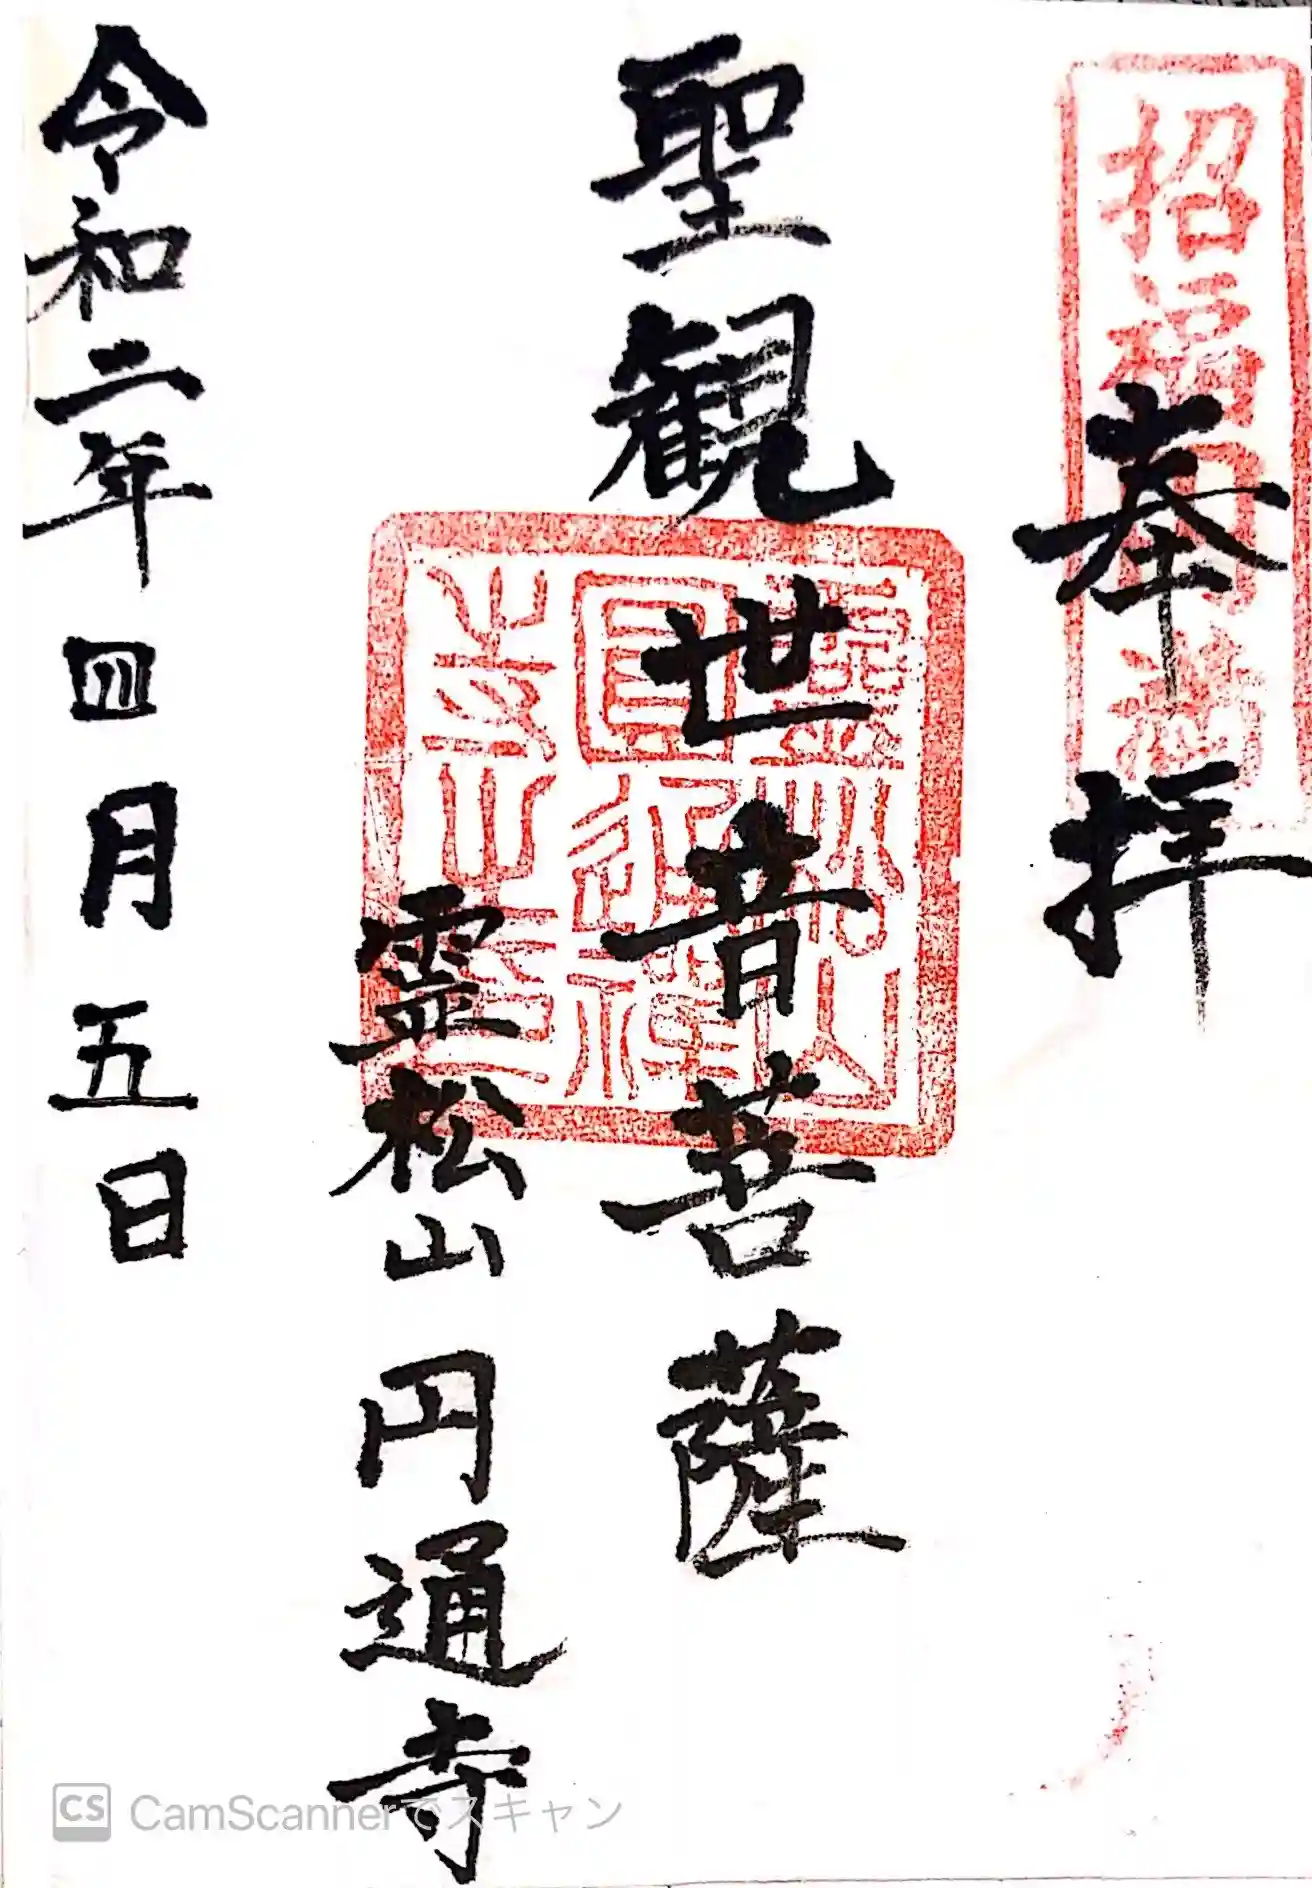 奉拝
聖観世音菩薩
霊松山円通寺
令和二年四月五日
CS CamScannerでスキャン